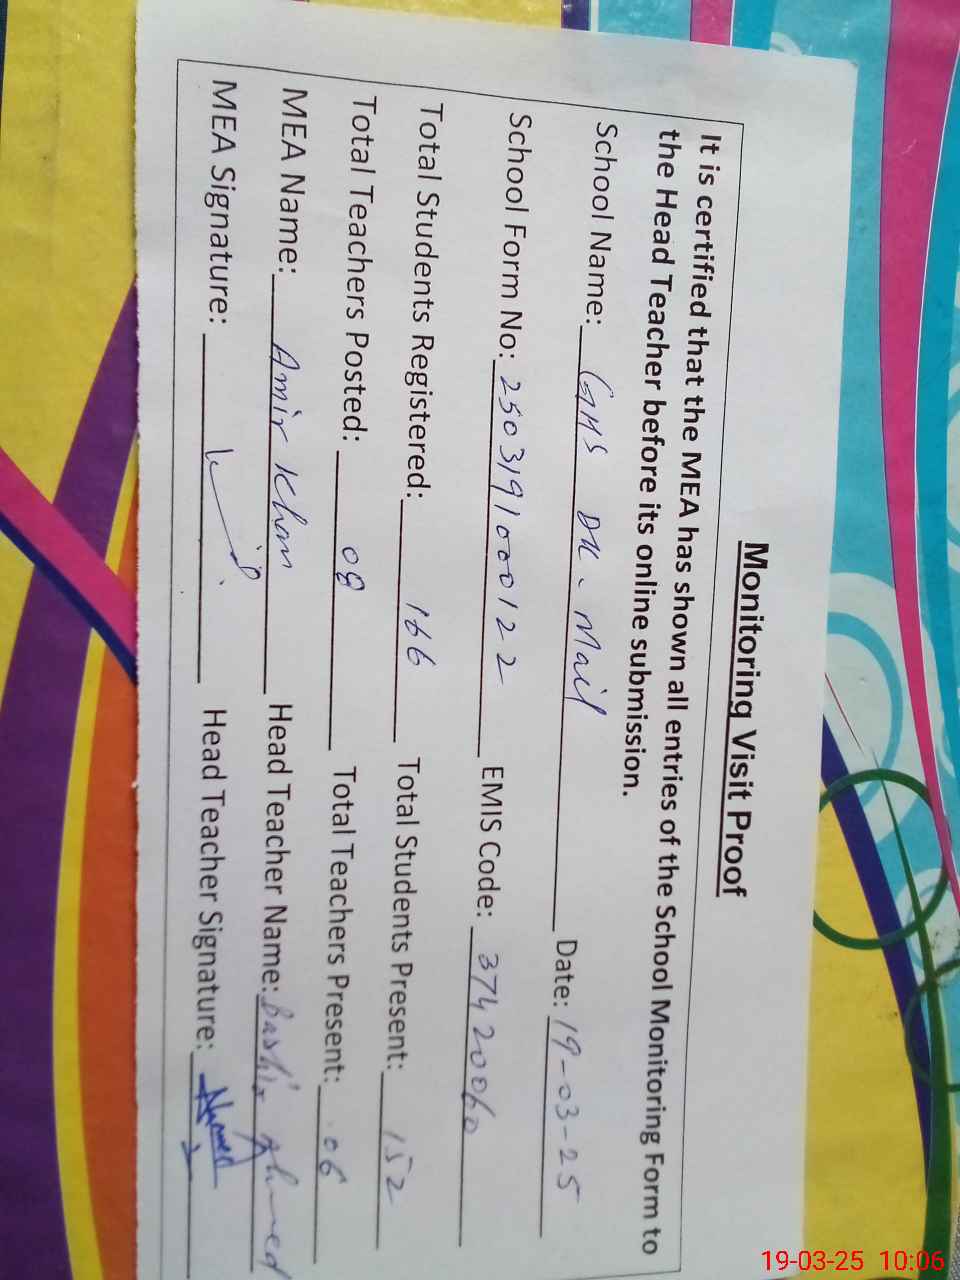 Monitoring Visit Proof
It is certified that the MEA has shown all entries of the School Monitoring Form to
the Head Teacher before its online submission.
School Name: GHS DK. Mail Date: 19-03-25
School Form No: 25031910000122 EMIS Code: 37420060
Total Students Registered: 166 Total Students Present: 152
Total Teachers Posted: 08 Total Teachers Present: 06
MEA Name: Amir Khan Head Teacher Name: Bashir Ahmed
MEA Signature: Head Teacher Signature: Ahmed
19-03-25 10:06